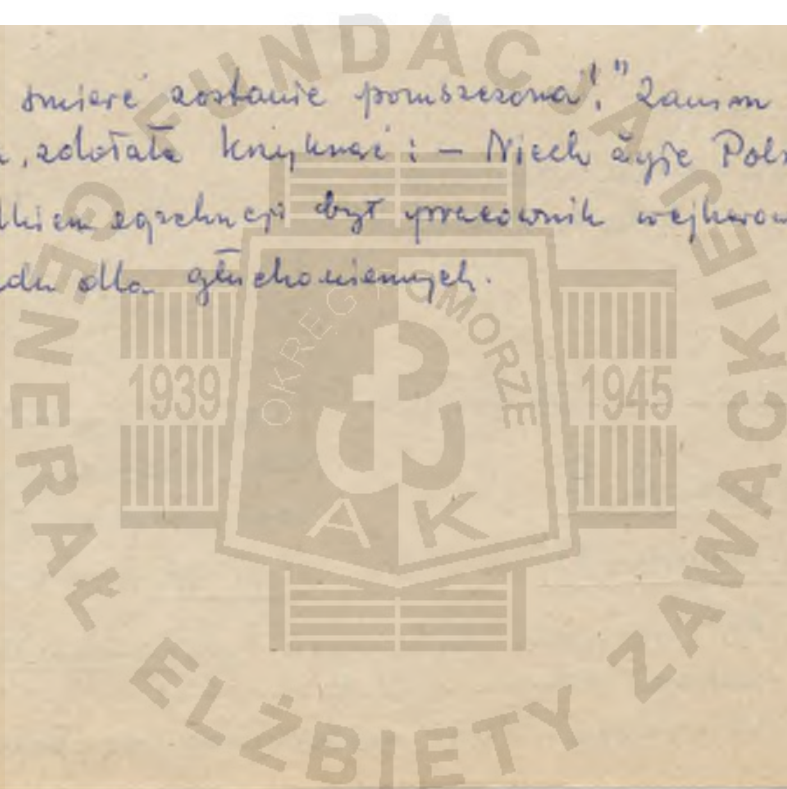 śmierć zostanie pomszczona!" Zanim
, zdołała krzyknąć: – Niech żyje Pols
dkiem egzekucji był pracownik wejherow
adu dla głuchoniemych.
FUNDACJA
GENERAŁ ELŻBIETY ZAWACKIEJ
OKRĘG POMORZE
1939
1945
A K